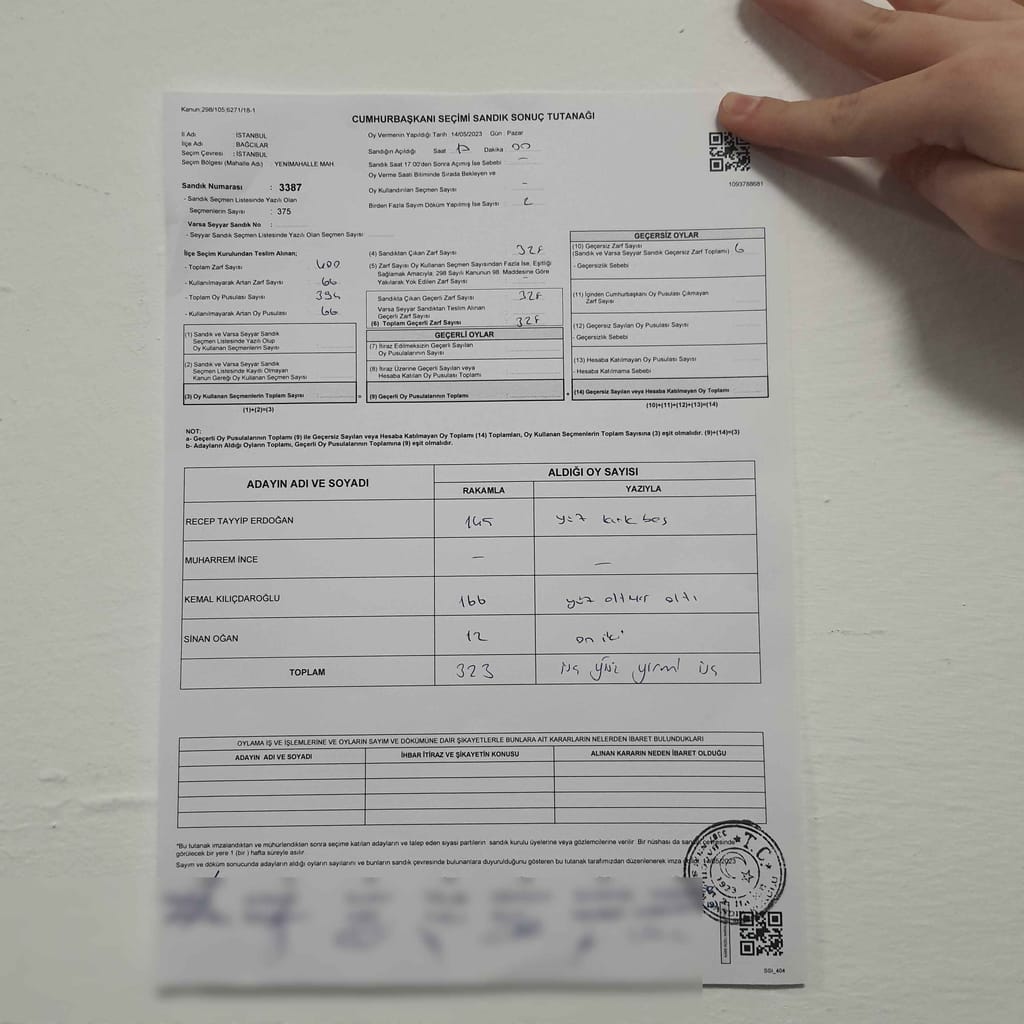 Kanun:298/105;6271/18-1
CUMHURBAŞKANI SEÇİMİ SANDIK SONUÇ TUTANAĞI
İl Adı : İSTANBUL
İlçe Adı : BAĞCILAR
Seçim Çevresi : İSTANBUL
Seçim Bölgesi (Mahalle Adı) YENİMAHALLE MAH.
Oy Vermenin Yapıldığı Tarih 14/05/2023 Gün : Pazar
Sandığın Açıldığı Saat Dakika 00
Sandık Saat 17.00'den Sonra Açılmış İse Sebebi
Oy Verme Saati Bitiminde Sırada Bekleyen ve
Oy Kullandırılan Seçmen Sayısı -
Birden Fazla Sayım Döküm Yapılmış İse Sayısı
1093788681
Sandık Numarası : 3387
- Sandık Seçmen Listesinde Yazılı Olan
Seçmenlerin Sayısı : 375
Varsa Seyyar Sandık No :
- Seyyar Sandık Seçmen Listesinde Yazılı Olan Seçmen Sayısı
İlçe Seçim Kurulundan Teslim Alınan;
- Toplam Zarf Sayısı : 400
- Kullanılmayarak Artan Zarf Sayısı : 66
- Toplam Oy Pusulası Sayısı : 394
- Kullanılmayarak Artan Oy Pusulası : 66
(1) Sandık ve Varsa Seyyar Sandık
Seçmen Listesinde Yazılı Olup
Oy Kullanan Seçmenlerin Sayısı
(2) Sandık ve Varsa Seyyar Sandık
Seçmen Listesinde Kayıtlı Olmayan
Kanun Gereği Oy Kullanan Seçmen Sayısı
(3) Oy Kullanan Seçmenlerin Toplam Sayısı :
(1)+(2)=(3)
(4) Sandıktan Çıkan Zarf Sayısı :
(5) Zarf Sayısı Oy Kullanan Seçmen Sayısından Fazla İse, Eşitliği
Sağlamak Amacıyla; 298 Sayılı Kanunun 98. Maddesine Göre
Yakılarak Yok Edilen Zarf Sayısı :
Sandıkta Çıkan Geçerli Zarf Sayısı :
Varsa Seyyar Sandıktan Teslim Alınan
Geçerli Zarf Sayısı :
(6) Toplam Geçerli Zarf Sayısı :
GEÇERLİ OYLAR
(7) İtiraz Edilmeksizin Geçerli Sayılan
Oy Pusulalarının Sayısı :
(8) İtiraz Üzerine Geçerli Sayılan veya
Hesaba Katılan Oy Pusulası Toplamı :
(9) Geçerli Oy Pusulalarının Toplamı :
GEÇERSİZ OYLAR
(10) Geçersiz Zarf Sayısı
(Sandık ve Varsa Seyyar Sandık Geçersiz Zarf Toplamı) 6
- Geçersizlik Sebebi
(11) İçinden Cumhurbaşkanı Oy Pusulası Çıkmayan
Zarf Sayısı
(12) Geçersiz Sayılan Oy Pusulası Sayısı
- Geçersizlik Sebebi
(13) Hesaba Katılmayan Oy Pusulası Sayısı
- Hesaba Katılmama Sebebi
(14) Geçersiz Sayılan veya Hesaba Katılmayan Oy Toplamı
(10)+(11)+(12)+(13)=(14)
NOT:
a- Geçerli Oy Pusulalarının Toplamı (9) ile Geçersiz Sayılan veya Hesaba Katılmayan Oy Toplamı (14) Toplamları, Oy Kullanan Seçmenlerin Toplam Sayısına (3) eşit olmalıdır. (9)+(14)=(3)
b- Adayların Aldığı Oyların Toplamı, Geçerli Oy Pusulalarının Toplamına (9) eşit olmalıdır.
ADAYIN ADI VE SOYADI ALDIĞI OY SAYISI
RAKAMLA YAZIYLA
RECEP TAYYİP ERDOĞAN 145 yüz kırk beş
MUHARREM İNCE — —
KEMAL KILIÇDAROĞLU 166 yüz altmış altı
SİNAN OĞAN 12 on iki
TOPLAM 323 üç yüz yirmi üç
OYLAMA İŞ VE İŞLEMLERİNE VE OYLARIN SAYIM VE DÖKÜMÜNE DAİR ŞİKAYETLERLE BUNLARA AİT KARARLARIN NELERDEN İBARET BULUNDUKLARI
ADAYIN ADI VE SOYADI İHBAR İTİRAZ VE ŞİKAYETİN KONUSU ALINAN KARARIN NEDEN İBARET OLDUĞU
*Bu tutanak imzalandıktan ve mühürlendikten sonra seçime katılan adayların ve talep eden siyasi partilerin sandık kurulu üyelerine veya gözlemcilerine verilir. Bir nüshası da sandık çevresinde
görülecek bir yere 1 (bir) hafta süreyle asılır.
Sayım ve döküm sonucunda adayların aldığı oyların sayılarını ve bunların sandık çevresinde bulunanlara duyurulduğunu gösteren bu tutanak tarafımızdan düzenlenerek imza 14/05/2023
T.C.
1923
SSI_404